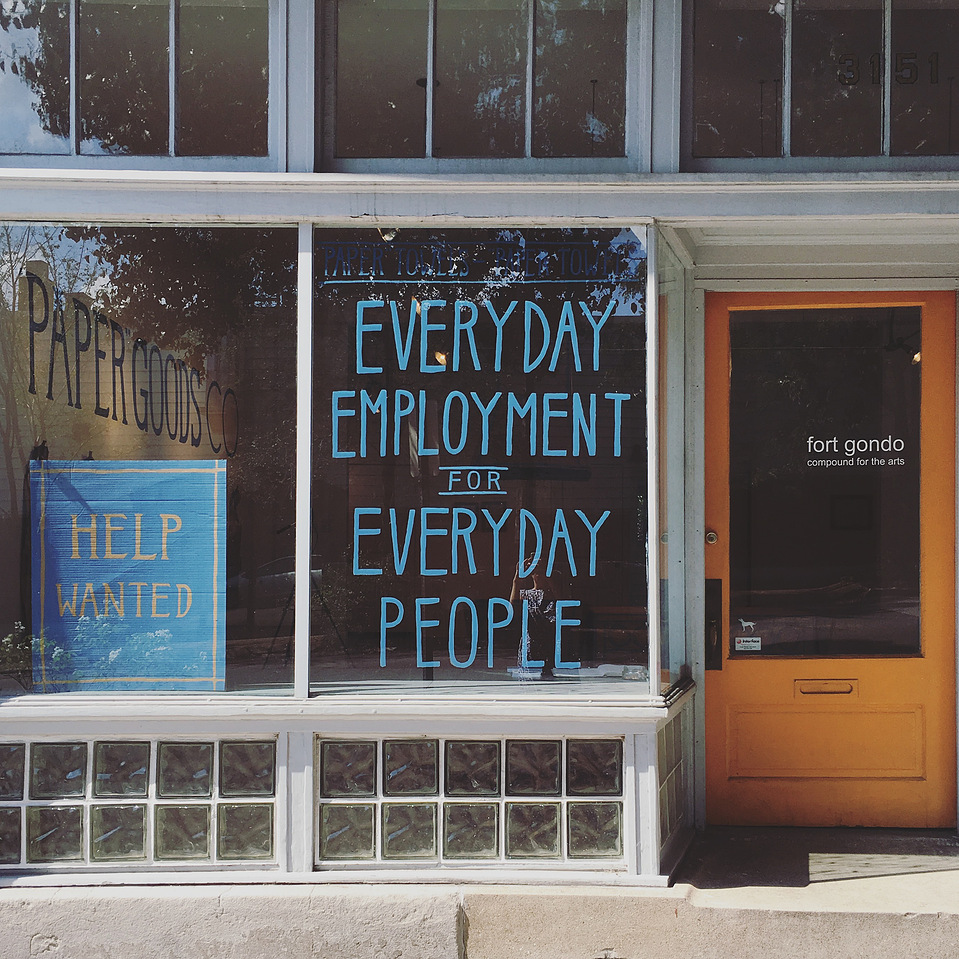 3151
PAPER TOWELS - PAPER TOWELS
EVERYDAY
EMPLOYMENT
FOR
EVERYDAY
PEOPLE
PAPER GOODS CO
HELP
WANTED
fort gondo
compound for the arts
Interface